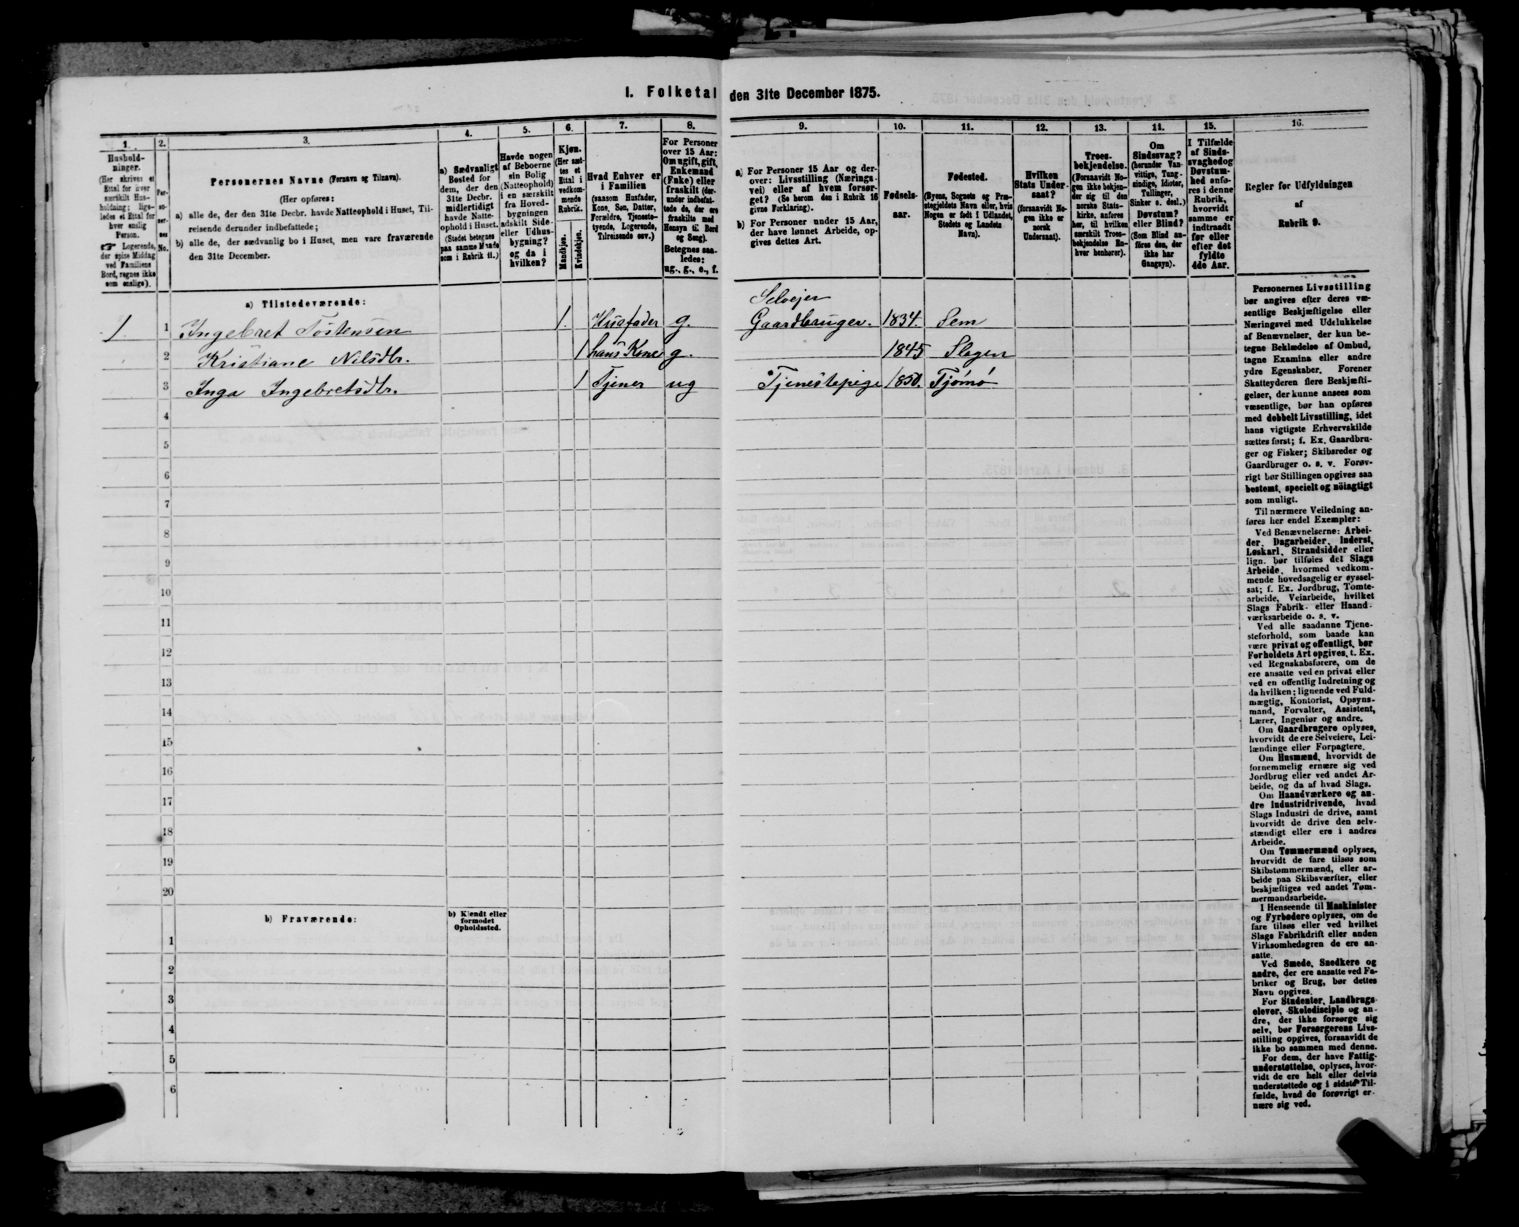 1. Folketal den 31te December 1875.
1.
2.
3.
4.
5.
6.
7.
8.
9.
10.
11.
12.
13.
14.
15.
16.
Hushold-
ninger.
(Her skrives et
Ettal for hver
særskilt Hus-
holdning; lige-
ledes et Ettal for
hver enslig
Person.
☞ Logerende,
der spise Middag
ved Familiens
Bord, regnes ikke
som enslige).
Per-
so-
ner-
nes
No.
Personernes Navne (Fornavn og Tilnavn).
(Her opføres:
a) alle de, der den 31te Decbr. havde Natteophold i Huset, Til-
reisende derunder indbefattede;
b) alle de, der sædvanlig bo i Huset, men vare fraværende
den 31te December.
a) Sædvanligt
Bosted for
dem, der den
31te Decbr.
midlertidigt
havde Natte-
ophold i Huset.
(Stedet betegnes
paa samme Maade
som i Rubrik 11.)
Havde nogen
af Beboerne
sin Bolig
(Natteophold)
i en særskilt
fra Hoved-
bygningen
adskilt Side-
eller Udhus-
bygning?
og da i
hvilken?
Kjøn.
(Her sæt-
tes et
Ettal i
vedkom-
mende
Rubrik.
Mandkjøn.
Kvindekjøn.
Hvad Enhver er
i Familien
(saasom Husfader,
Kone, Søn, Datter,
Forældre, Tjeneste-
tyende, Logerende,
Tilreisende osv.)
For Personer
over 15 Aar:
Om ugift, gift,
Enkemand
(Enke) eller
fraskilt (der-
under indbefat-
tede de, der ere
fraskilte med
Hensyn til Bord
og Seng).
Betegnes saa-
ledes:
ug., g., e., f.
a) For Personer 15 Aar og der-
over: Livsstilling (Nærings-
vei) eller af hvem forsør-
get? (Se herom den i Rubrik 16
givne Forklaring).
b) For Personer under 15 Aar,
der have lønnet Arbeide, op-
gives dettes Art.
Fødsels-
aar.
Fødested.
(Byens, Sognets og Præ-
stegjeldets Navn eller, hvis
Nogen er født i Udlandet,
Stedets og Landets
Navn).
Hvilken
Stats Under-
saat?
(forsaavidt No-
gen ikke er
norsk
Undersaat).
Troes-
bekjendelse.
(Forsaavidt No-
gen ikke bekjen-
der sig til den
norske Stats-
kirke, anføres
her, til hvilken
særskilt Troes-
bekjendelse En-
hver henhører).
Om
Sindssvag?
(herunder Van-
vittige, Tung-
sindige, Idioter,
Tullinger,
Sinker o. desl.)
Døvstum?
eller Blind?
(Som Blind an-
føres den, der
ikke har
Gangsyn).
I Tilfælde
af Sinds-
svaghed og
Døvstum-
hed anfø-
res i denne
Rubrik,
hvorvidt
samme er
indtraadt
før eller
efter det
fyldte
4de Aar.
Regler for Udfyldningen
af
Rubrik 9.
a) Tilstedeværende:
1. 1 Ingebret Tostensen 1. Husfader g. Selveier Gaardbruger. 1834. Sem
2 Kristiane Nilsdtr. 1 hans Kone g. 1845 Slagen
3 Inga Ingebretsdtr. 1 Tjener ug Tjenestepige 1850. Tjømø
4
5
6
7
8
9
10
11
12
13
14
15
16
17
18
19
20
b) Fraværende:
b) Kjendt eller
formodet
Opholdssted.
1
2
3
4
5
6
Personernes Livsstilling
bør angives efter deres væ-
sentlige Beskjæftigelse eller
Næringsvei med Udelukkelse
af Benævnelser, der kun be-
tegne Beklædelse af Ombud,
tagne Examina eller andre
ydre Egenskaber. Forener
Skatteyderen flere Beskjæfti-
gelser, der kunne ansees som
væsentlige, bør han opføres
med dobbelt Livsstilling, idet
hans vigtigste Erhvervskilde
sættes først; f. Ex. Gaardbru-
ger og Fisker; Skibsreder og
Gaardbruger o. s. v. Forøv-
rigt bør Stillingen opgives saa
bestemt, specielt og nöiagtigt
som muligt.
Til nærmere Veiledning an-
føres her endel Exempler:
Ved Benævnelserne: Arbei-
der, Dagarbeider, Inderst,
Løskarl, Strandsidder eller
lign. bør tilføies det Slags
Arbeide, hvormed vedkom-
mende hovedsagelig er syssel-
sat; f. Ex. Jordbrug, Tomte-
arbeide, Veiarbeide, hvilket
Slags Fabrik- eller Haand-
værksarbeide o. s. v.
Ved alle saadanne Tjene-
steforhold, som baade kan
være privat og offentligt, bør
Forholdets Art opgives, t. Ex.
ved Regnskabsførere, om de
ere ansatte ved en privat eller
ved en offentlig Indretning og
da hvilken; lignende ved Fuld-
mægtig, Kontorist, Opsyns-
mand, Forvalter, Assistent,
Lærer, Ingeniør og andre.
Om Gaardbrugere oplyses,
hvorvidt de ere Selveiere, Lei-
lændinge eller Forpagtere.
Om Husmænd, hvorvidt de
fornemmelig ernære sig ved
Jordbrug eller ved andet Ar-
beide, og da af hvad Slags.
Om Haandværkere og an-
dre Industridrivende, hvad
Slags Industri de drive, samt
hvorvidt de drive den selv-
stændigt eller ere i andres
Arbeide.
Om Tømmermænd oplyses,
hvorvidt de fare tilsøs som
Skibstømmermænd, eller ar-
beide paa Skibsværfter, eller
beskjæftiges ved andet Tøm-
mermandsarbeide.
I Henseende til Maskinister
og Fyrbødere oplyses, om de
fare tilsøs eller ved hvilket
Slags Fabrikdrift eller anden
Virksomhedsgren de ere an-
satte.
Ved Smede, Snedkere og
andre, der ere ansatte ved Fa-
briker og Brug, bør dettes
Navn opgives.
For Studenter, Landbrugs-
elever, Skoledisciple og an-
dre, der ikke forsørge sig
selv, bør Forsørgerens Livs-
stilling opgives, forsaavidt de
ikke bo sammen med denne.
For dem, der have Fattig-
understøttelse, oplyses, hvor-
vidt de ere helt eller delvis
understøttede og i sidste Til-
fælde, hvad de forøvrigt er-
nære sig ved.